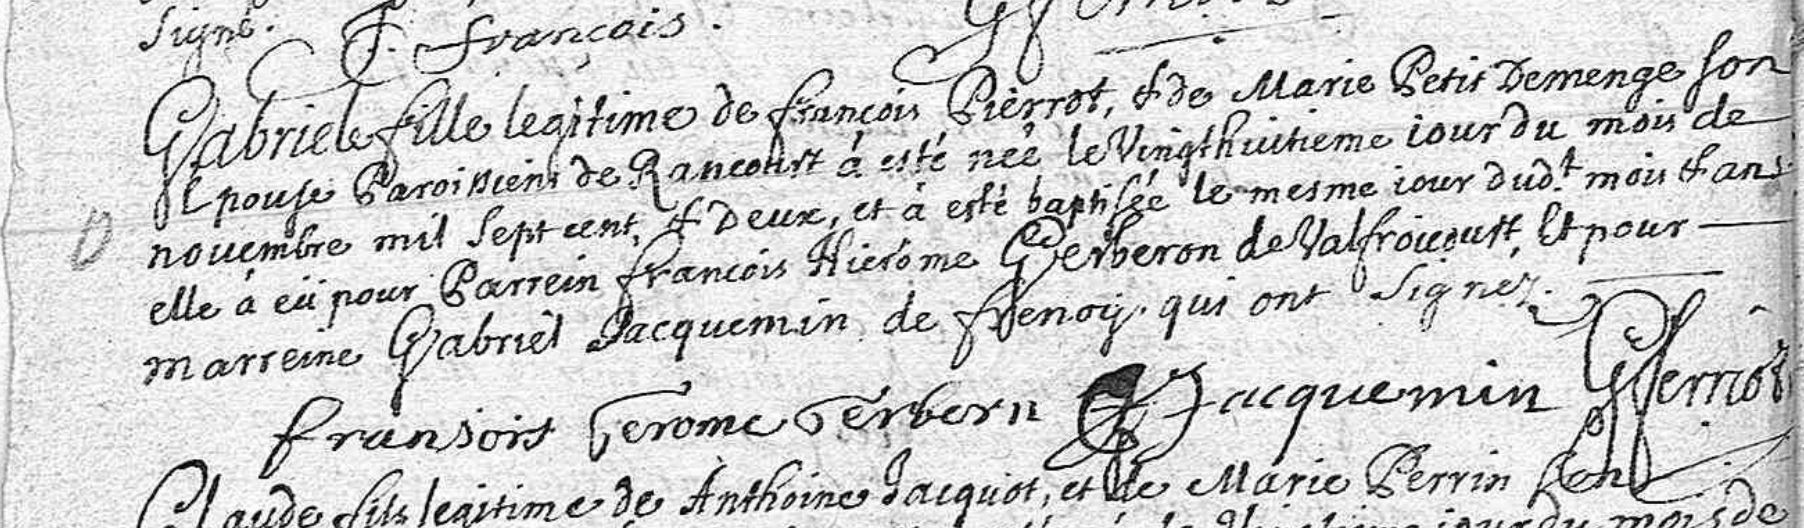 signé. F. François.
Gabriele fille legitime de françois Pierrot, & de Marie Petit Demenge son
Epouse Paroissiens de Rancourt à esté neé le Vingthuitieme iour du mois de
novembre mil sept cent, & Deux, et à esté baptisée le mesme iour dud.t mois & ans
elle à eü pour Parrein françois Hieróme Gerberon de Valfroicourt, Et pour
marreine Gabriel Jacquemin de frenoy. qui ont signez.
fransois Gerome Gerbern G Jacquemin
Claude fils legitime de Anthoine Jacquot, et de Marie Perrin son
iour du mois de